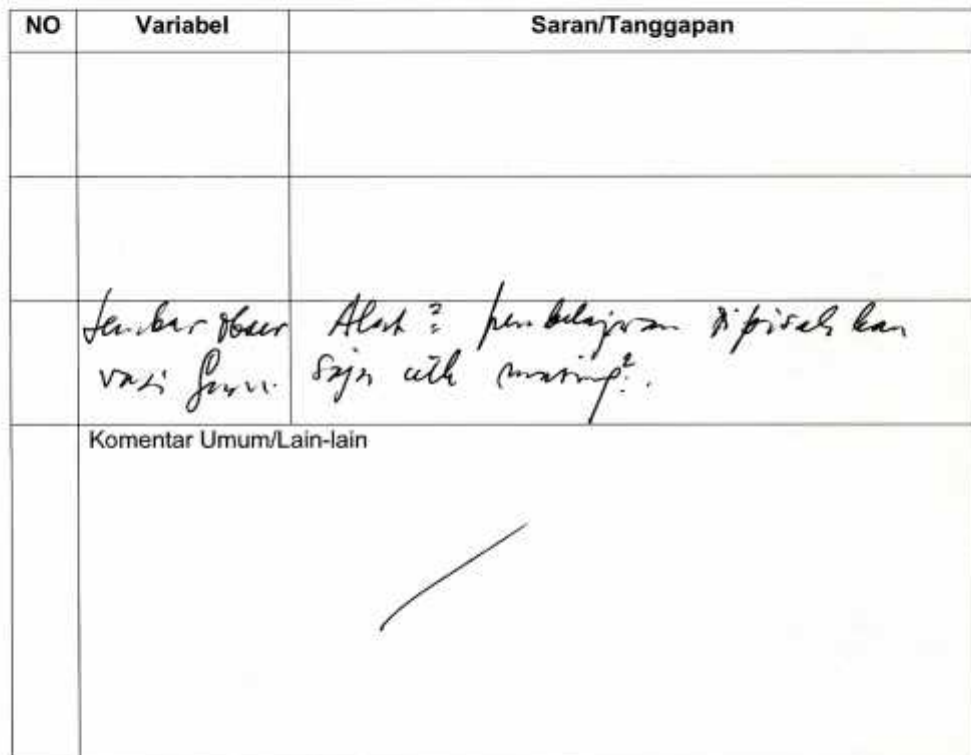 NO Variabel Saran/Tanggapan
Lembar obser Alat² pembelajaran dipisahkan
vasi Guru. saja utk masing².
Komentar Umum/Lain-lain